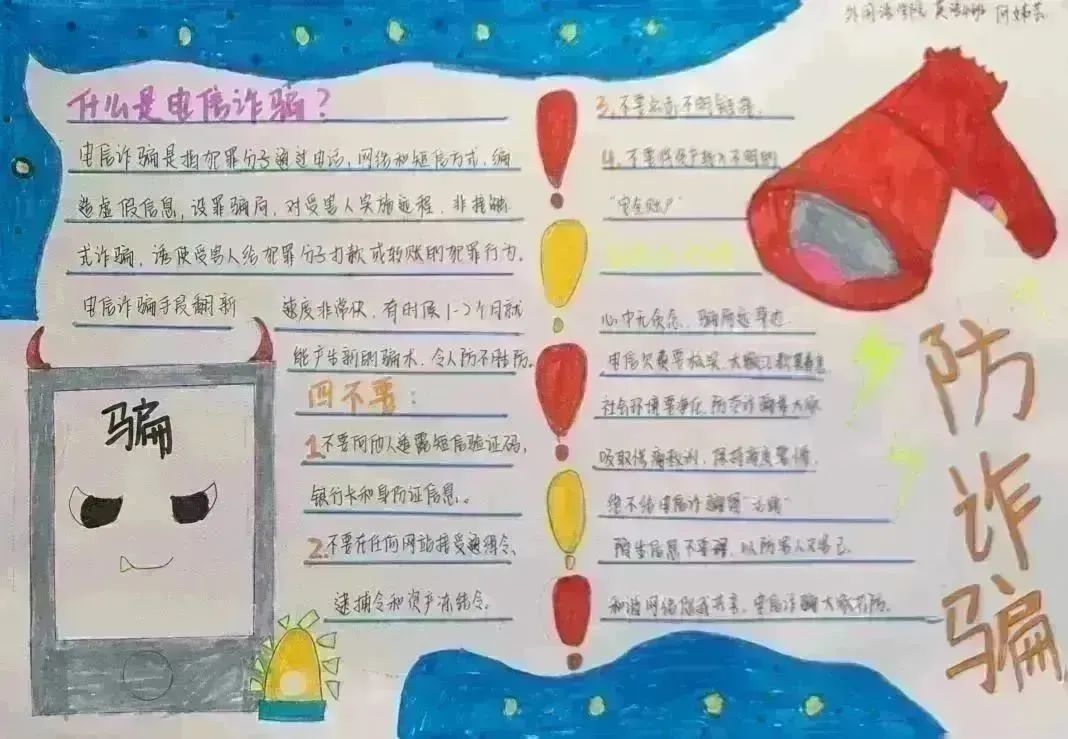 外国语学院 英语
什么是电信诈骗？
电信诈骗是指犯罪分子通过电话、网络和短信方式，编
造虚假信息，设置骗局，对受害人实施远程、非接触
式诈骗，诱使受害人给犯罪分子打款或转账的犯罪行为。
电信诈骗手段翻新 速度非常快，有时候1-2个月就
能产生新的骗术，令人防不胜防。
骗
四不要：
1.不要向他人透露短信验证码，
银行卡和身份证信息。
2.不要在任何网站接受通缉令、
逮捕令和资产冻结令。
3.不要点击不明链接。
4.不要将资产转入不明的
"安全账户"
心中无贪念，骗局远身边
电信欠费要核实，
社会环境要净化，防范诈骗靠大家
吸取传商教训，保持高度警惕
绝不给电信诈骗留
陌生信息不要理，以防害人又害己
和谐网络你我共享，电信诈骗大家共防。
防诈骗